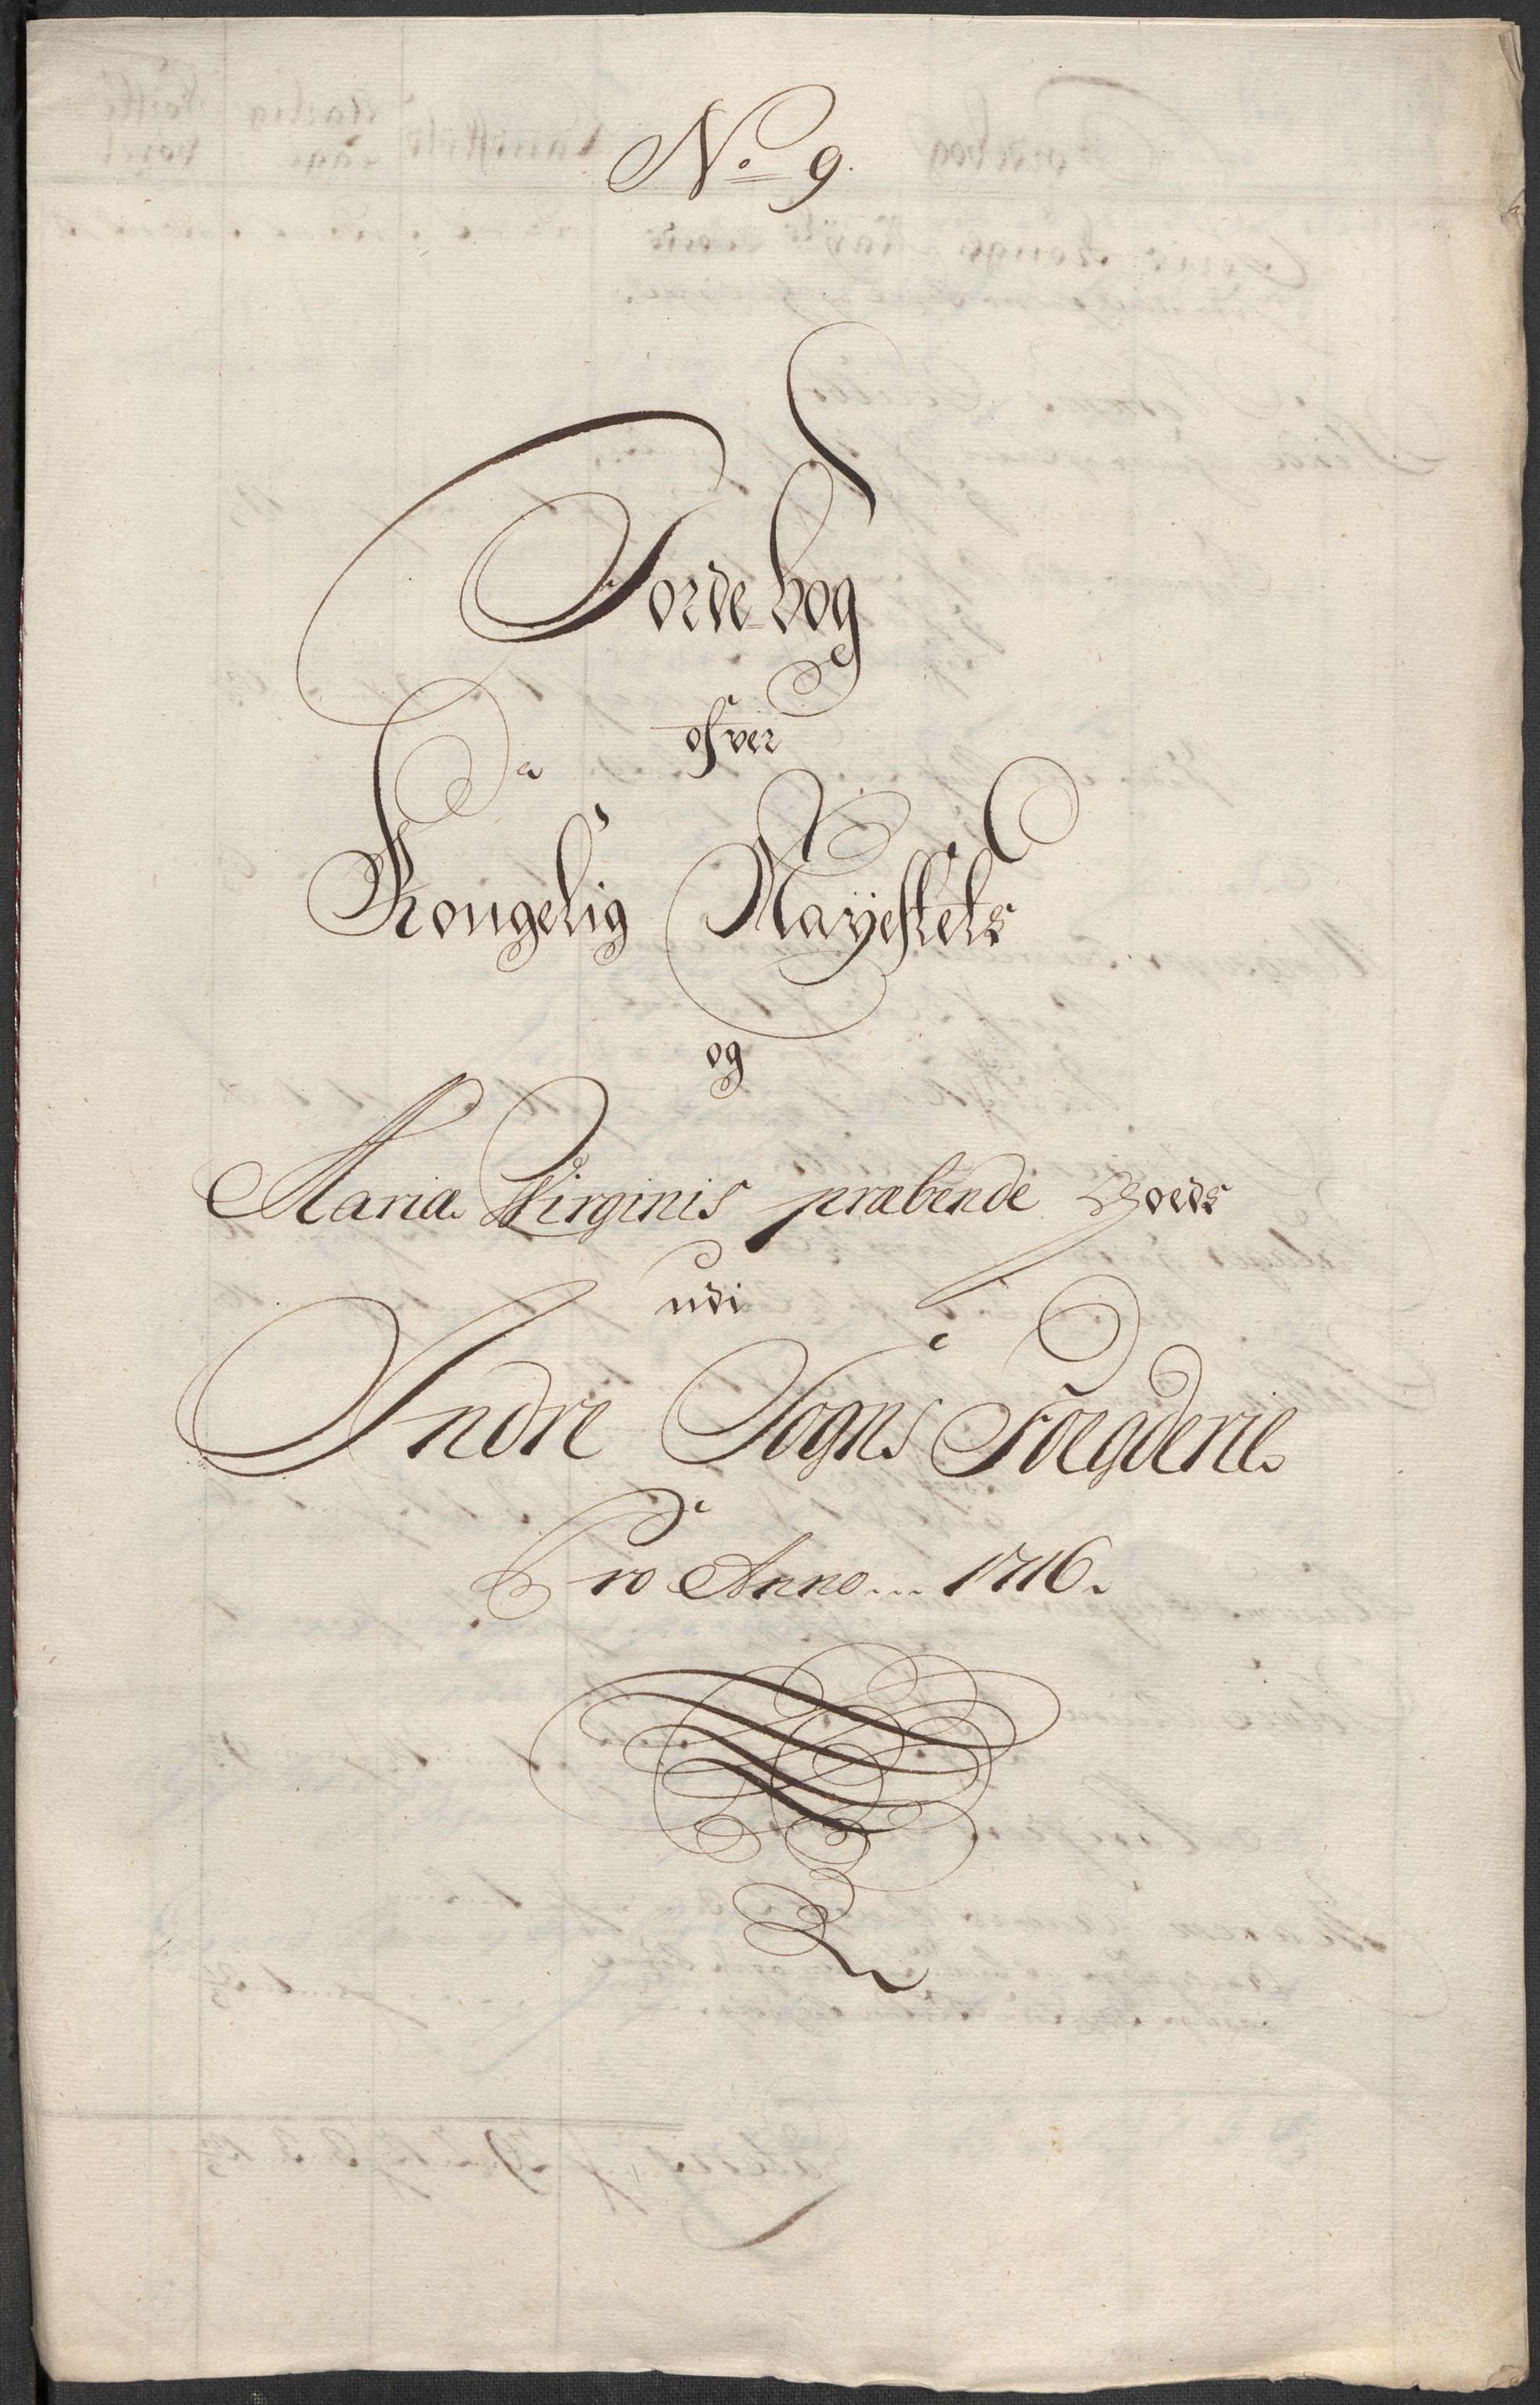 No 9.
Jorde-bog
ofver
Kongelig Mayestets
og
Mariæ Virginis præbende Goeds
udi
Indre Sogns Foegderie
Pro Anno... 1716.